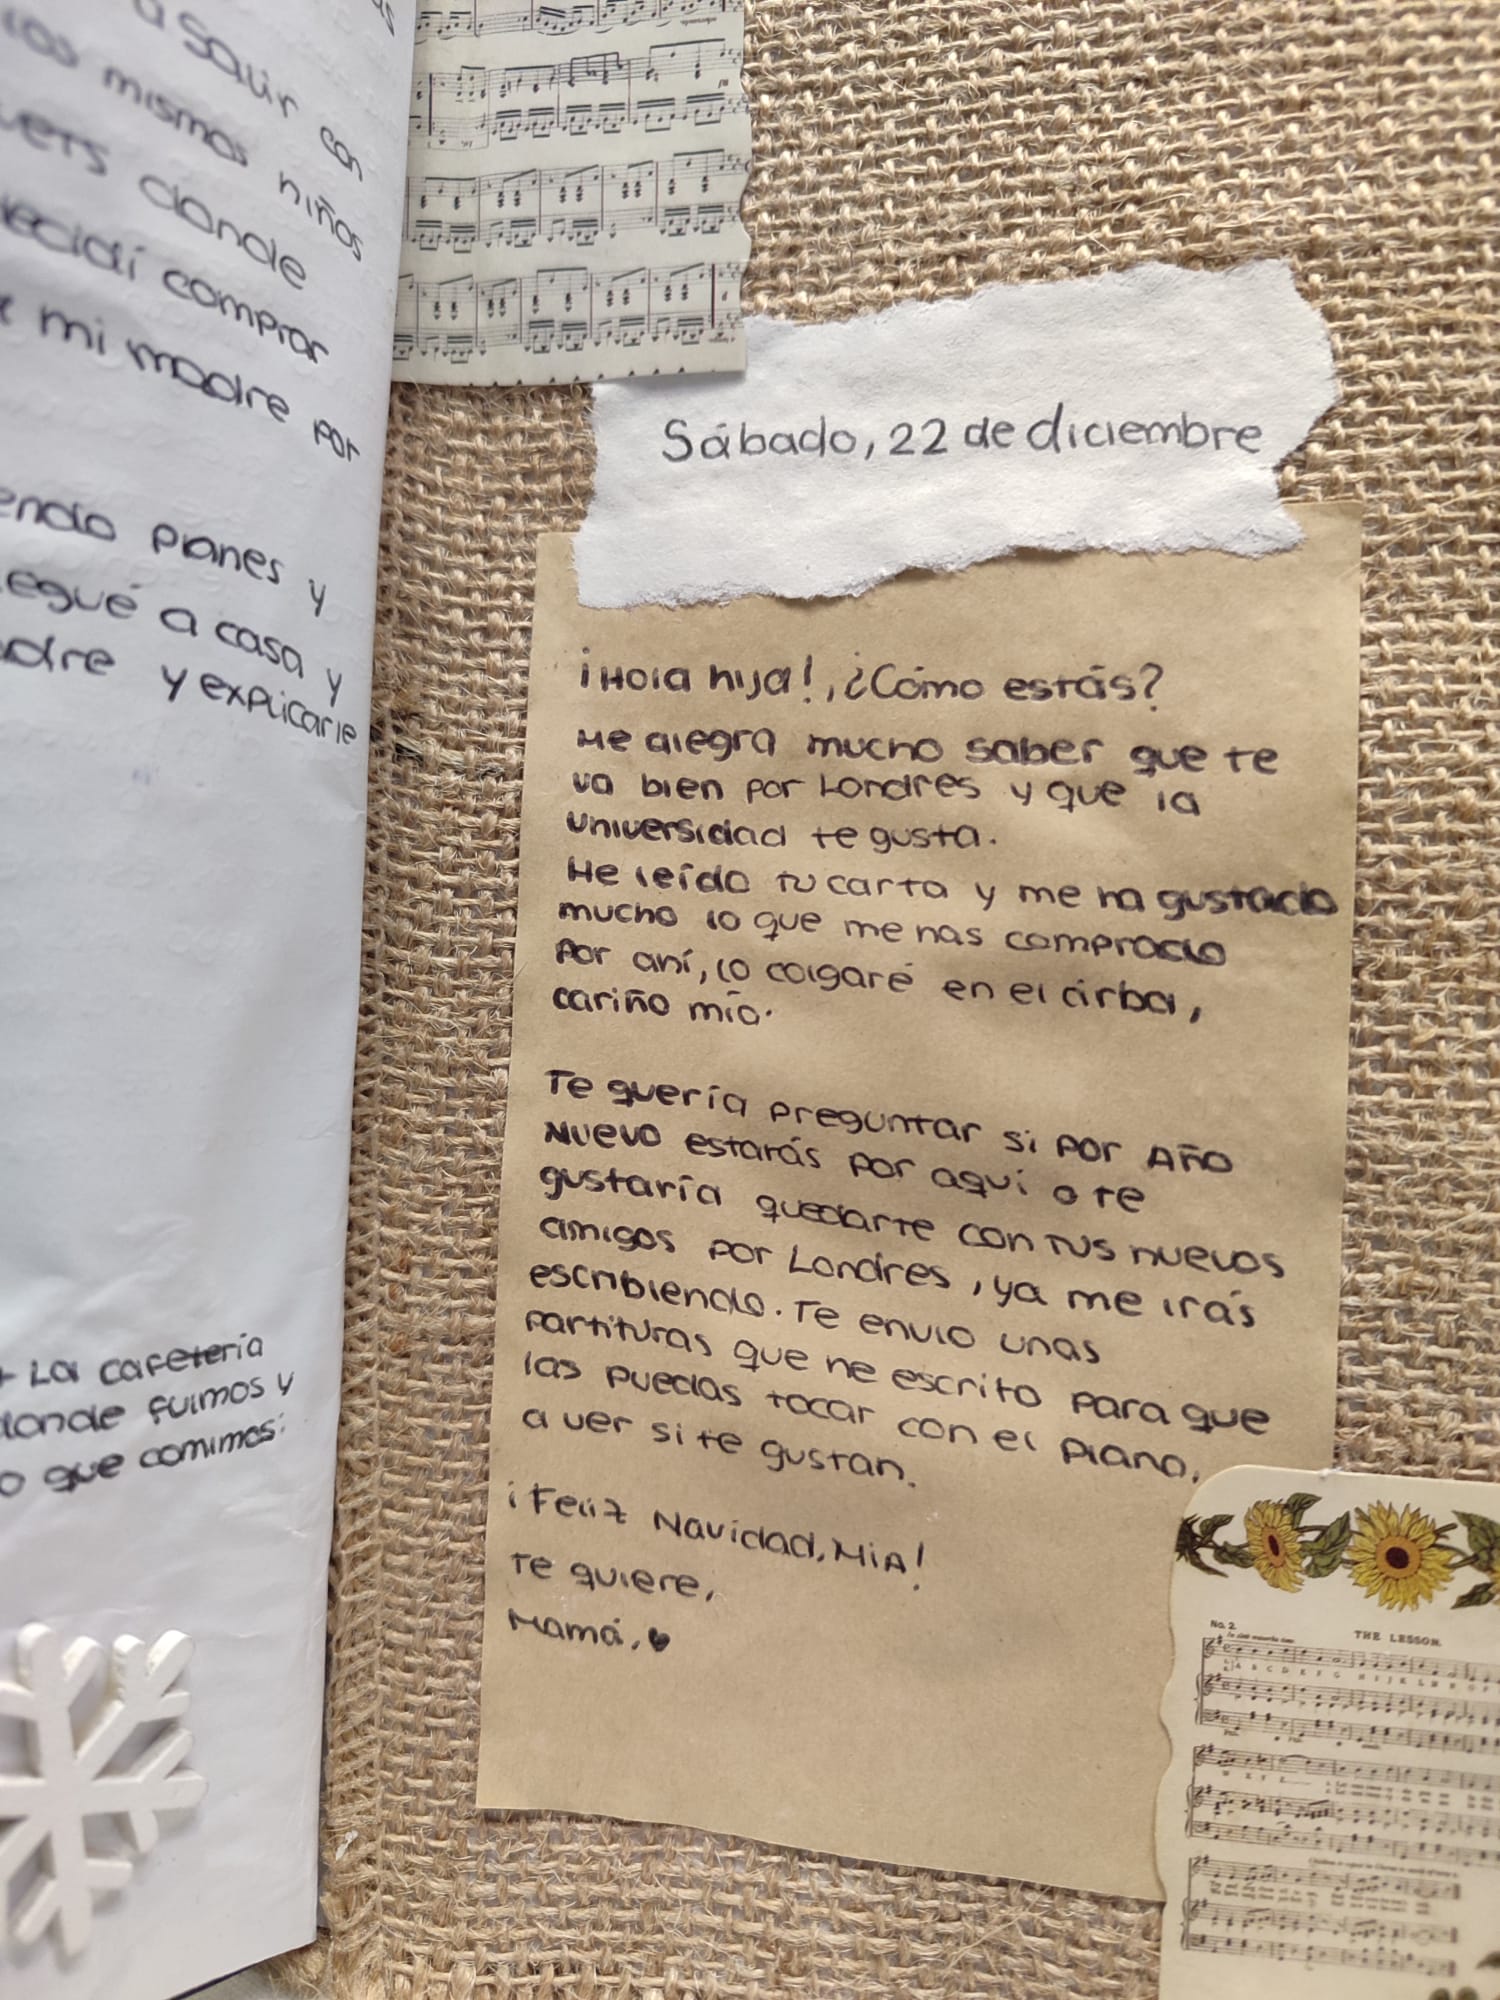 a salir con
los mismos niños
donde
decidí comprar
mi madre por
planes y
llegué a casa y
y explicarle
La cafetería
donde fuimos y
lo que comimos:
Sábado, 22 de diciembre
¡Hola hija!, ¿Cómo estás?
Me alegra mucho saber que te
va bien por Londres y que la
universidad te gusta.
He leído tu carta y me ha gustado
mucho lo que me has comprado
por ahí, lo colgaré en el árbol,
cariño mío.
Te quería preguntar si por Año
Nuevo estarás por aquí o te
gustaría quedarte con tus nuevos
amigos por Londres, ya me irás
escribiendo. Te envio unas
partituras que he escrito para que
las puedas tocar con el piano,
a ver si te gustan.
¡Feliz Navidad, MiA!
Te quiere,
Mamá. ♥
No. 2.
THE LESSON.